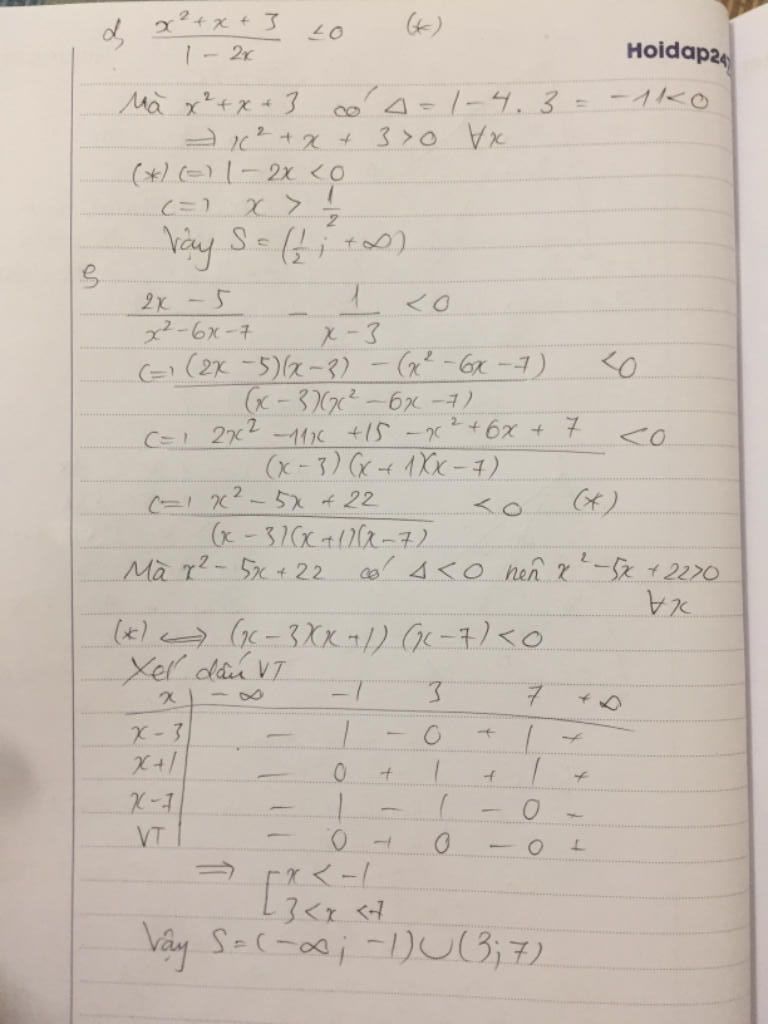 d, (x² + x + 3)/(1 - 2x) ≤ 0 (*)
Hoidap247
Mà x² + x + 3 có Δ = 1 - 4 . 3 = -11 < 0
=> x² + x + 3 > 0 ∀x
(*) <=> 1 - 2x < 0
<=> x > 1/2
Vậy S = (1/2 ; +∞)
e,
(2x - 5)/(x² - 6x - 7) - 1/(x - 3) < 0
<=> ((2x - 5)(x - 3) - (x² - 6x - 7))/((x - 3)(x² - 6x - 7)) < 0
<=> (2x² - 11x + 15 - x² + 6x + 7)/((x - 3)(x + 1)(x - 7)) < 0
<=> (x² - 5x + 22)/((x - 3)(x + 1)(x - 7)) < 0 (*)
Mà x² - 5x + 22 có Δ < 0 nên x² - 5x + 22 > 0
∀x
(*) <=> (x - 3)(x + 1)(x - 7) < 0
Xét dấu VT
x | -∞ -1 3 7 +∞
x - 3 | - | - 0 + | +
x + 1 | - 0 + | + | +
x - 7 | - | - | - 0 -
VT | - 0 + 0 - 0 +
=> [ x < -1
3 < x < 7
Vậy S = (-∞ ; -1) ∪ (3 ; 7)